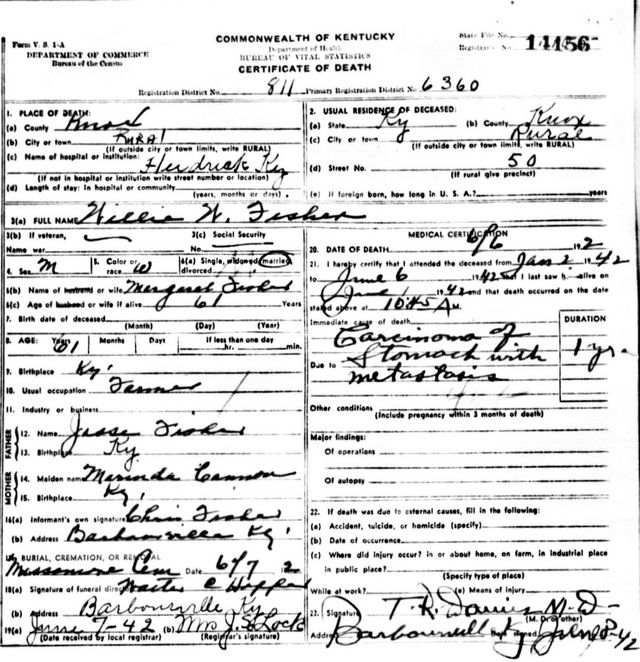 COMMONWEALTH OF KENTUCKY
Form V. S. 1-A
DEPARTMENT OF COMMERCE
Bureau of the Census
Department of Health
BUREAU OF VITAL STATISTICS
CERTIFICATE OF DEATH
State File No.
Registrar's No. 14156
Registration District No. 811 Primary Registration District No. 6360
1. PLACE OF DEATH:
(a) County Knox
(b) City or town Rural
(If outside city or town limits, write RURAL)
(c) Name of hospital or institution:
Ky
(If not in hospital or institution write street number or location)
(d) Length of stay: In hospital or community
(years, months or days)
2. USUAL RESIDENCE OF DECEASED:
(a) State Ky (b) County Knox
(c) City or town Rural
(If outside city or town limits, write RURAL)
(d) Street No. 50
(If rural give precinct)
(e) If foreign born, how long in U. S. A.? years
3(a) FULL NAME Willie W. Fisher
3(b) If veteran,
Name war
3(c) Social Security
No.
4. Sex M
5. Color or race W
6(a) Single, widowed, married, divorced
6(b) Name of husband or wife Margaret Fisher
6(c) Age of husband or wife if alive 61 Years
7. Birth date of deceased
(Month) (Day) (Year)
8. AGE: Years Months Days If less than one day
61 hr. min.
9. Birthplace Ky.
10. Usual occupation Farmer
11. Industry or business
FATHER
12. Name Jesse Fisher
13. Birthplace Ky.
MOTHER
14. Maiden name Marinda Cannon
15. Birthplace Ky.
16(a) Informant's own signature Chris Fisher
(b) Address Barbourville Ky.
17. BURIAL, CREMATION, OR REMOVAL
Cem Date 6/7 2
18(a) Signature of funeral director Walter C
(b) Address Barbourville Ky
19(a) June 7-42 (b) Mrs J. S. Lock
(Date received by local registrar) (Registrar's signature)
MEDICAL CERTIFICATION
20. DATE OF DEATH 6/6 192
21. I hereby certify that I attended the deceased from Jan 2 1942
to June 6 1942 that I last saw h alive on
June 1 1942 and that death occurred on the date
stated above at 10:45 A M.
Immediate cause of death
DURATION
Carcinoma of
Due to Stomach with 1 yr.
metastasis
Other conditions
(Include pregnancy within 3 months of death)
Major findings:
Of operations
Of autopsy
22. If death was due to external causes, fill in the following:
(a) Accident, suicide, or homicide (specify)
(b) Date of occurrence
(c) Where did injury occur? in or about home, on farm, in industrial place
in public place?
(Specify type of place)
While at work? (e) Means of injury
23. Signature T. R. Davies M-D-
(M. D. or other)
Address Barbourville Ky Date signed 8-42